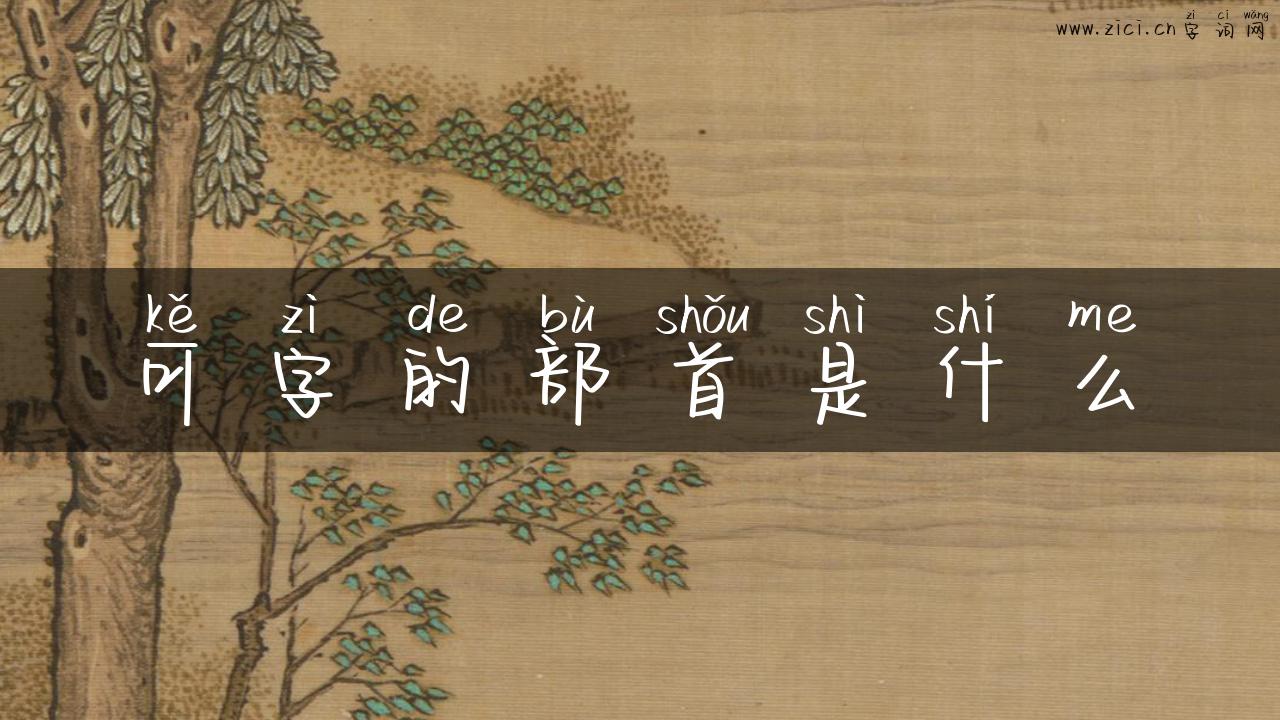 zì cí wǎng
www.zici.cn字词网
kě zì de bù shǒu shì shí me
可字的部首是什么